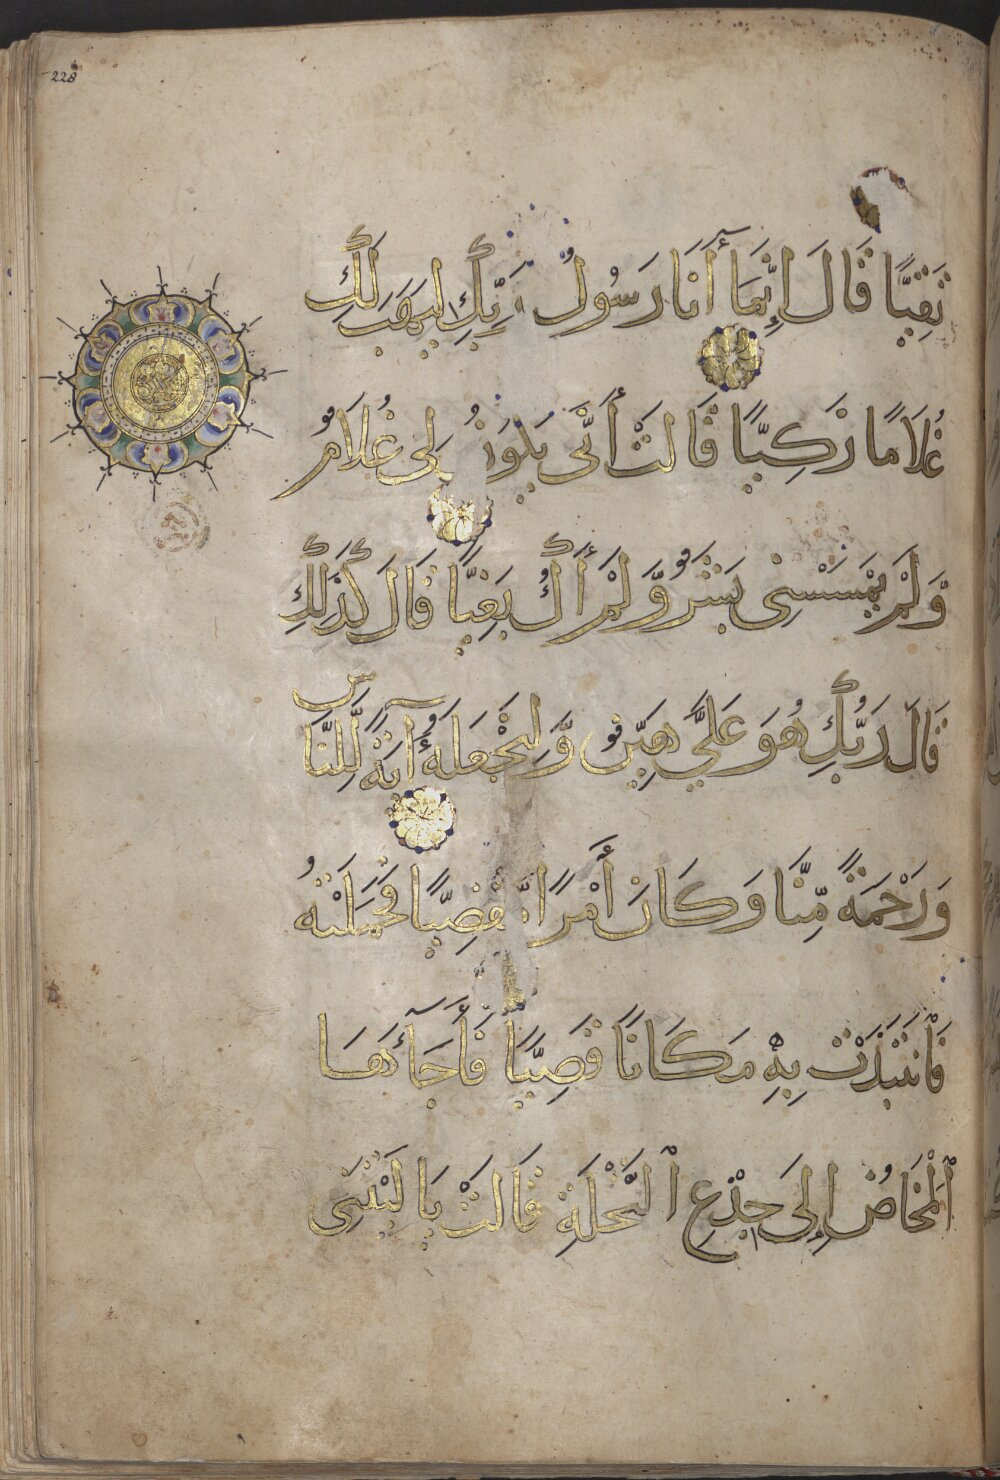 228
تَقِيًّا قَالَ إِنَّمَا أَنَا رَسُولُ رَبِّكِ لِيَهَبَ لَكِ
غُلَامًا زَكِيًّا قَالَتْ أَنَّى يَكُونُ لِي غُلَامٌ
وَّلَمْ يَمْسَسْنِي بَشَرٌ وَّلَمْ أَكُ بَغِيًّا قَالَ كَذَٰلِكِ
قَالَ رَبُّكِ هُوَ عَلَيَّ هَيِّنٌ وَّلِنَجْعَلَهُ آيَةً لِّلنَّاسِ
وَرَحْمَةً مِّنَّا وَكَانَ أَمْرًا مَّقْضِيًّا فَحَمَلَتْهُ
فَانتَبَذَتْ بِهِ مَكَانًا قَصِيًّا فَأَجَآءَهَا
ٱلْمَخَاضُ إِلَى جِذْعِ ٱلنَّخْلَةِ قَالَتْ يَا لَيْتَنِي